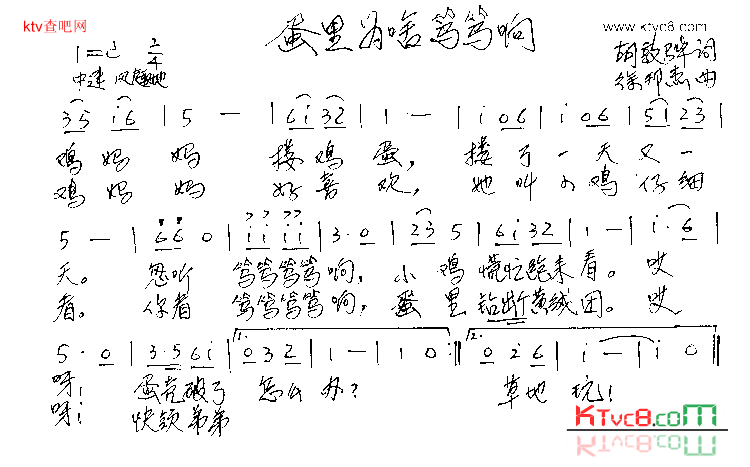 ktv查吧网
www.ktvc8.com
蛋里为啥笃笃响
1=C 2/4
中速
胡敦骅 词
徐邦杰 曲
3 5 i 6 | 5 — | 6 i 3 2 | 1 — | i 0 6 | i 0 6 | 5 i 2 3 |
鸡妈妈 搂鸡蛋，搂了一天又一
鸡妈妈 好喜欢，她叫小鸡仔细
5 — | 6 6 0 | i i i i | 3 · 0 | 2 3 5 | 6 i 3 2 | 1 — | i · 6 |
天。忽听 笃笃笃笃响，小鸡慌忙跑来看。哎
看。你看 笃笃笃笃响，蛋里钻出黄绒团。哎
5 · 0 | 3 · 5 6 i | 1. 0 3 2 | 1 — | 1 0 :‖ 2. 0 2 6 | i — | i 0 ‖
呀！蛋壳破了 怎么办？ 草地玩！
呀！快领弟弟
KTvc8.com